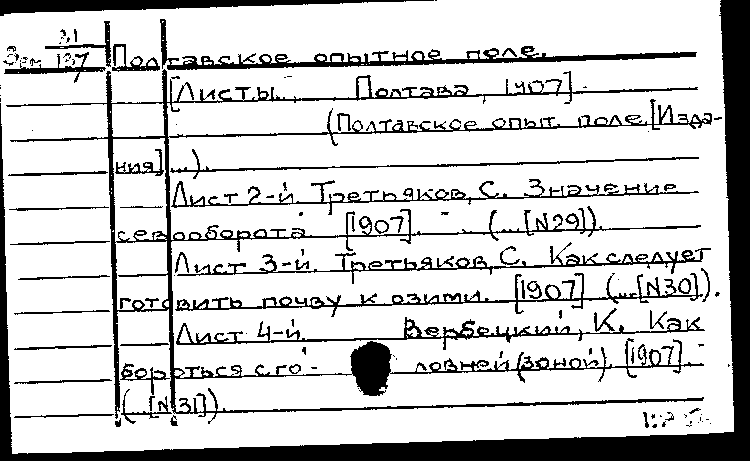 Зем 31/137 Полтавское опытное поле.
[Листы. Полтава, 1907].
(Полтавское опыт. поле. [Изда-
ния] ...).
Лист 2-й. Третьяков, С. Значение
севооборота. [1907]. (...[N29]).
Лист 3-й. Третьяков, С. Как следует
готовить почву к озими. [1907] (...[N30]).
Лист 4-й. Вербецкий, К. Как
бороться с го- ловней (зоной). [1907].
(...[N31]).